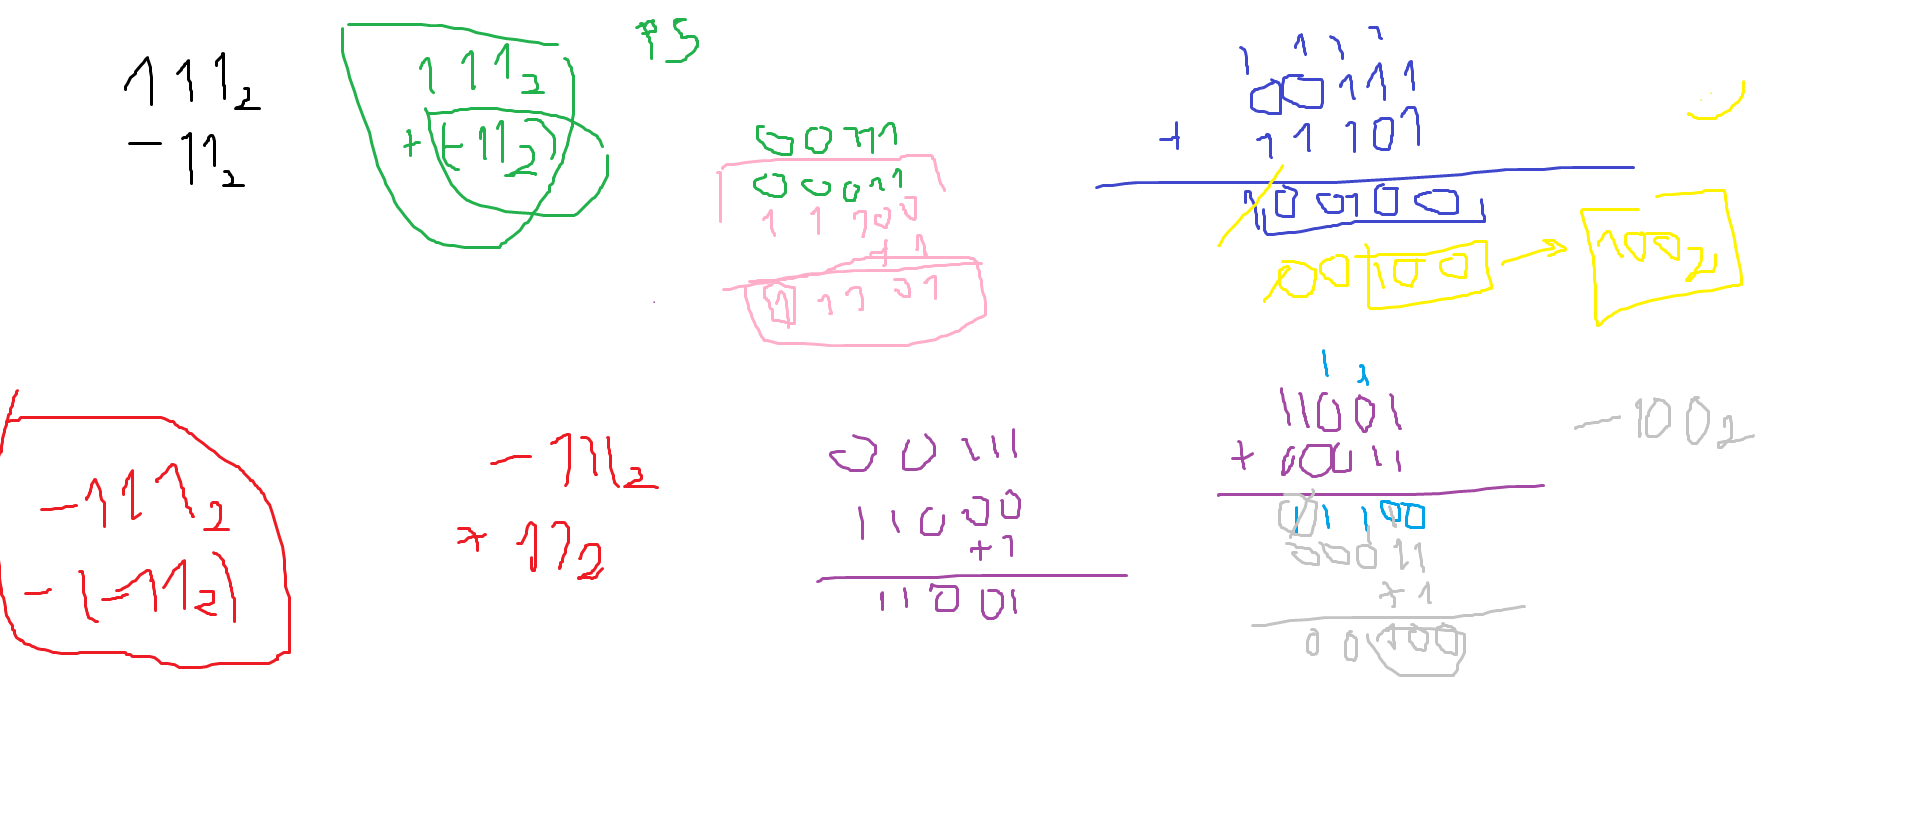 111₂
- 11₂
111₂
+ (-11₂)
P5
00111
00011
11100
+1
11101
1 1 1 1
00111
+ 11101
100100
00100 → 100₂
-111₂
- (-11₂)
-111₂
+ 11₂
00111
11000
+1
11001
1 1
11001
+ 00011
11100
00011
+1
00100
-100₂